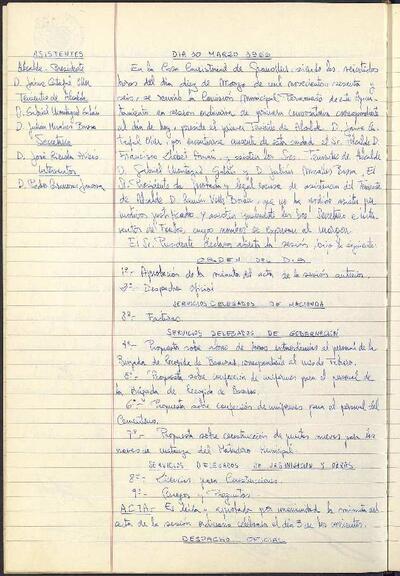 ASISTENTES
Alcalde-Presidente
D. Jaime
Teniente de Alcalde
D. Gabriel
D. Julian
Secretario
D. José
Interventor
D. Pedro
DIA 10 MARZO 1966
En la Casa Consistorial de Granollers, siendo las veintidós
horas del día diez de Marzo de mil novecientos sesenta y
seis, se reunió la Comisión Municipal Permanente de este Ayun-
tamiento en sesión ordinaria de primera convocatoria correspondiente
al día de hoy, preside el primer Teniente de Alcalde D. Jaime
por encontrarse ausente de esta ciudad el Sr. Alcalde D.
Francisco Llobet asisten los Sres. Tenientes de Alcalde
D. Gabriel y D. Julian El
Sr. Presidente da legal excusa de asistencia del Teniente
de Alcalde D. Ramón que no ha podido asistir por
motivos justificados, y asisten igualmente los Sres. Secretario e Inter-
ventor de Fondos, cuyos nombres se expresan al margen.
El Sr. Presidente declara abierta la sesión, bajo el siguiente:
ORDEN DEL DIA
1º- Aprobación de la minuta del acta de la sesión anterior.
2º- Despacho Oficial
SERVICIOS DELEGADOS DE HACIENDA
3º- Facturas
SERVICIOS DELEGADOS DE GOBERNACIÓN
4º- Propuesta sobre abono de horas extraordinarias al personal de la
Brigada de Recogida de Basuras, correspondiente al mes de Febrero.
5º- Propuesta sobre confección de uniformes para el personal de
la Brigada de Recogida de Basuras.
6º- Propuesta sobre confección de uniformes para el personal del
Cementerio.
7º- Propuesta sobre construcción de puertas nuevas para las
naves de matanza del Matadero municipal.
SERVICIOS DELEGADOS DE URBANIZACION Y OBRAS
8º- Licencias para Construcciones.
9º- Ruegos y Preguntas.
ACTA- Es leída y aprobada por unanimidad la minuta del
acta de la sesión ordinaria celebrada el día 3 de los corrientes.
DESPACHO OFICIAL